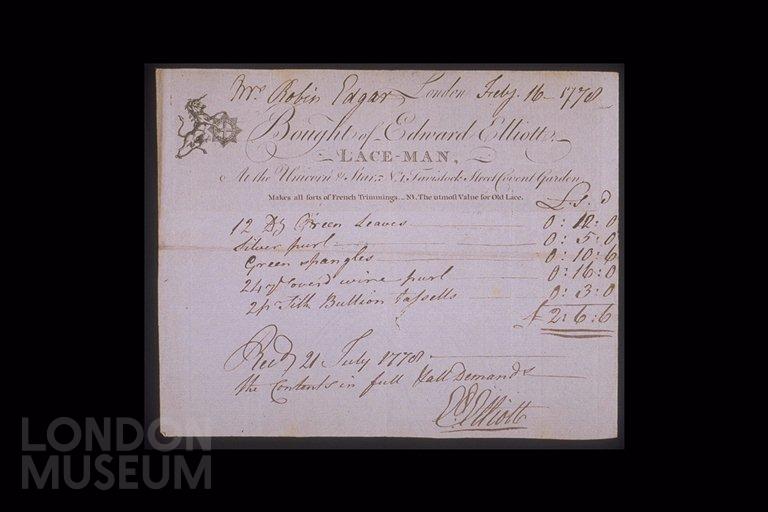 Mrs Robin Edgar London Feby. 16 1778
Bought of Edward Elliott.
LACE-MAN,
At the Unicorn & Star, No. 1, Tavistock Street Covent Garden
Makes all sorts of French Trimmings... NB. The utmost Value for Old Lace.
L. s. d
12 Dz Green Leaves 0: 12: 0
Silver purl 0: 5: 0
Green spangles 0: 10: 6
24 yd Coverd wire purl 0: 16: 0
2 pr Silk Bullion Tassells 0: 3: 0
£ 2: 6: 6
Recd 21 July 1778
the Contents in full & all Demands
Ed Elliott
LONDON
MUSEUM